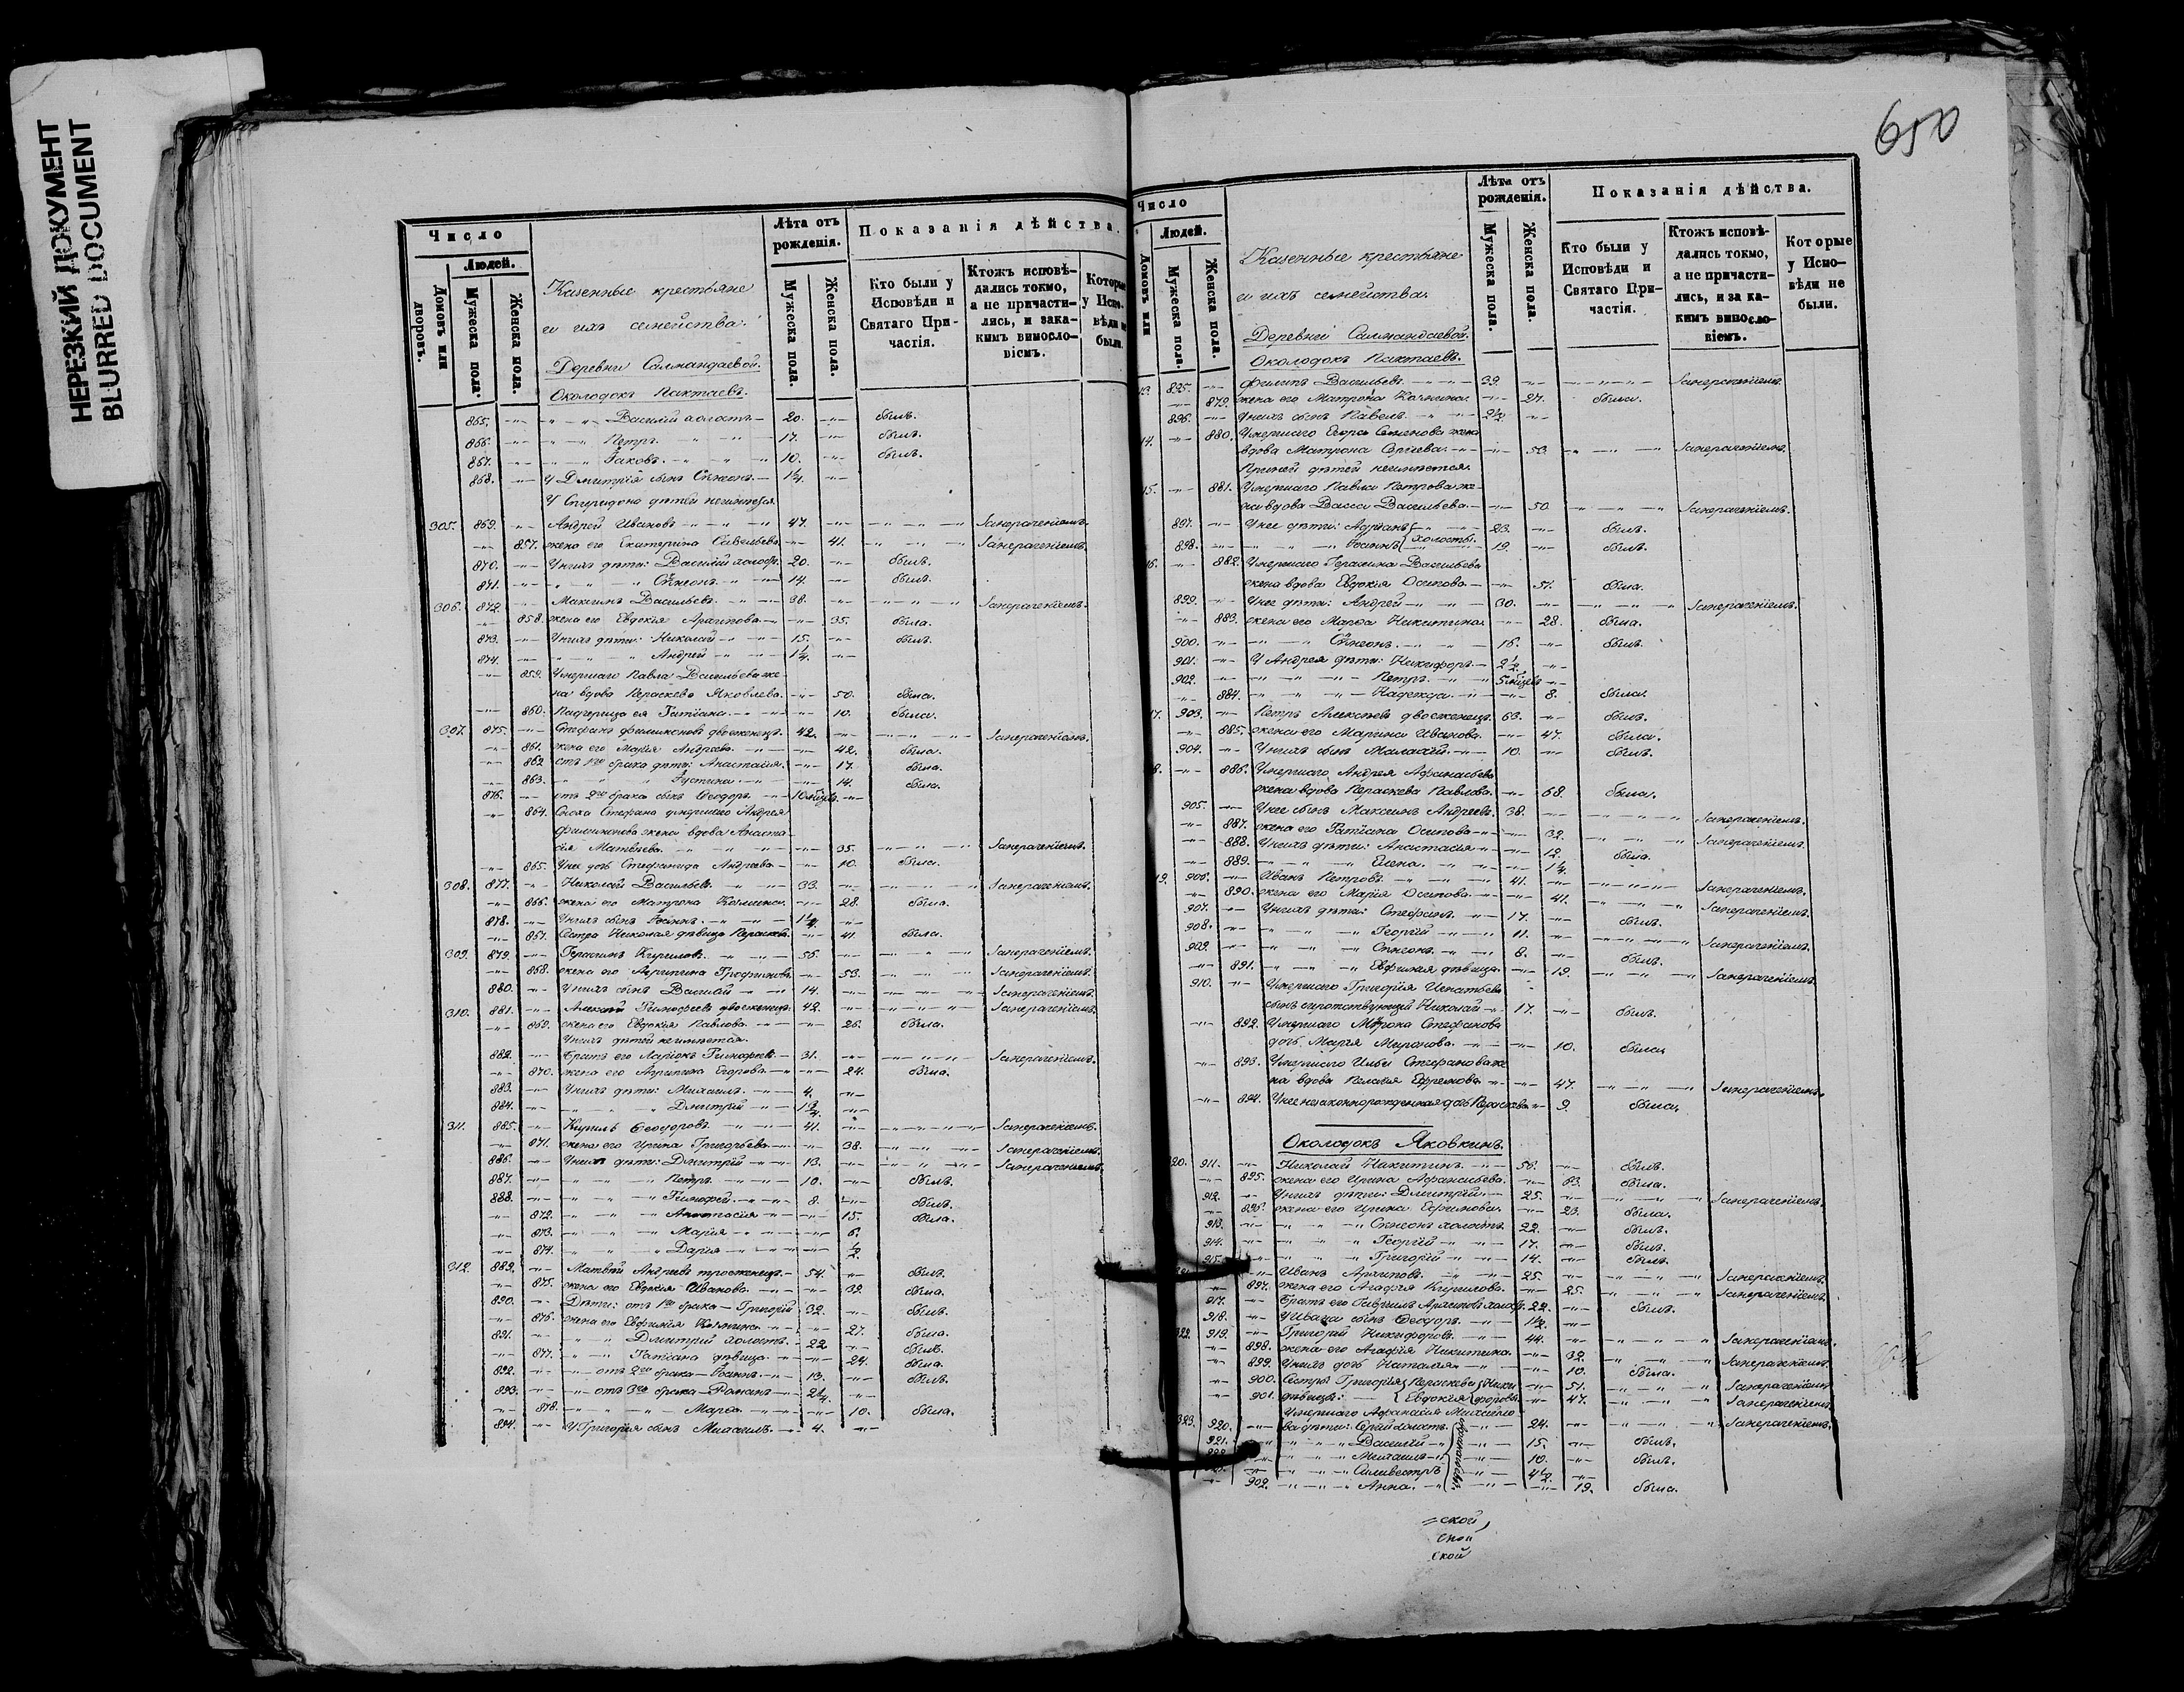 НЕРЕЗКИЙ ДОКУМЕНТ
BLURRED DOCUMENT
Число
Людей.
Домовъ или дворовъ.
Мужеска пола.
Женска пола.
Казенные крестьяне
и ихъ семейства.
Деревни Салмандаевой.
Околодокъ Пактаевъ.
Лѣта отъ рожденія.
Мужеска пола.
Женска пола.
Показанія дѣйства.
Кто были у Исповѣди и Святаго Причастія.
Ктожъ исповѣдались токмо, а не причастились, и закакимъ винословіемъ.
Которые у Исповѣди не были.
865. Василій холостъ 20. былъ.
866. Петръ 17. былъ.
867. Іаковъ. 10. былъ.
868. У Дмитрія сынъ Сѵмеонъ. 1¼.
У Спиридона дѣтей неимѣется.
305. 869. Андрей Ивановъ 47. Занераченіемъ.
857. жена его Екатерина Савельева 41. Занераченіемъ.
870. Унихъ дѣти: Василій холостъ. 20. былъ.
871. Сѵмеонъ. 14. былъ.
306. 872. Максимъ Васильевъ. 38. Занераченіемъ.
858. жена его Евдокія Архипова 35. была.
873. Унихъ дѣти: Николай 15. былъ.
874. Андрей 1¼.
859. Умершаго Павла Васильева же-
на вдова Параскева Яковлева. 50. была.
860. Падчерица ея Татіана. 10. была.
307. 875. Стефанъ Филимоновъ двоеженецъ. 42. Занераченіемъ.
861. жена его Марія Андреева 42. была.
862. отъ 1го брака дѣти: Анастасія. 17. была.
863. Іустина. 14. была.
876. отъ 2го брака сынъ Ѳеодоръ. 10 мѣцевъ.
864. Сноха Стефана умершаго Андрея
Филимонова жена вдова Анаста-
сія Матвѣева. 35. Занераченіемъ.
865. Унее дочь Стефанида Андреева 10. была.
308. 877. Николай Васильевъ 33. Занераченіемъ.
866. жена его Матрона Козмина. 28. была.
878. Унихъ сынъ Іоаннъ. 1¼.
867. Сестра Николая дѣвица Параскева. 41. была.
309. 879. Герасимъ Кирилловъ. 56. Занераченіемъ.
868. жена его Агрипина Трофимова. 53. Занераченіемъ.
880. Унихъ сынъ Василій 14. Занераченіемъ.
310. 881. Алексѣй Тимофеевъ двоеженецъ. 42. Занераченіемъ.
869. жена его Евдокія Павлова. 26. была.
Унихъ дѣтей неимѣется.
882. Братъ его Ларіонъ Тимофеевъ. 31. Занераченіемъ.
870. жена его Агрипина Егорова 24. была.
883. Унихъ дѣти: Михаилъ. 4.
884. Дмитрій 1¾.
311. 885. Кирилъ Ѳеодоровъ. 41. Занераченіемъ.
871. жена его Ирина Григорьева 38. Занераченіемъ.
886. Унихъ дѣти: Дмитрій 13. Занераченіемъ.
887. Петръ 10. былъ.
888. Тимофей. 8. былъ.
872. Анастасія 15. была.
873. Марія 6.
874. Дарія ½.
312. 889. Матвѣй Андреевъ троеженецъ. 54. былъ.
875. жена его Евдокія Иванова. 39. была.
890. Дѣти: отъ 1го брака Григорій 32. былъ.
876. жена его Евфимія Козмина 27. была.
891. Дмитрій холостъ. 22 былъ.
877. Татіана дѣвица. 24. была.
892. отъ 2го брака Іоаннъ. 13. былъ.
893. отъ 3го брака Романъ 2¼.
878. Марѳа. 10. была.
894. У Григорія сынъ Михаилъ. 4.
650
Число
Людей.
Домовъ или
Мужеска пола.
Женска пола.
Казенные крестьяне
и ихъ семейства.
Деревни Салмандаевой.
Околодокъ Пактаевъ.
Лѣта отъ рожденія.
Мужеска пола.
Женска пола.
Показанія дѣйства.
Кто были у Исповѣди и Святаго Причастія.
Ктожъ исповѣдались токмо, а не причастились, и за какимъ винословіемъ.
Которые у Исповѣди не были.
13. 895. Филипъ Васильевъ 39. Занераченіемъ.
879. жена его Матрона Козмина. 27. была.
896. Унихъ сынъ Павелъ. 2½.
14. 880. Умершаго Егора Семенова жена
вдова Матрона Сергиева. 50. Занераченіемъ.
Принеей дѣтей неимѣется.
15. 881. Умершаго Павла Петрова же-
на вдова Васса Васильева. 50. Занераченіемъ.
897. Унее дѣти: Адріанъ холосты. 23. былъ.
898. Іоаннъ 19. былъ.
16. 882. Умершаго Герасима Васильева
жена вдова Евдокія Осипова 51. была.
899. Унее дѣти: Андрей 30. Занераченіемъ.
883. жена его Марѳа Никитина. 28. была.
900. Сѵмеонъ. 16. былъ.
901. У Андрея дѣти: Никифоръ. 2½.
902. Петръ 5 мѣцевъ
884. Надежда. 8. была.
17. 903. Петръ Алексѣевъ двоеженецъ. 63. былъ.
885. жена его Марина Иванова 47. была.
904. Унихъ сынъ Малахій. 10. былъ.
8. 886. Умершаго Андрея Афанасьева
жена вдова Параскева Павлова. 68. была.
905. Унее сынъ Максимъ Андреевъ. 38. Занераченіемъ.
887. жена его Татіана Осипова 32. Занераченіемъ.
888. Унихъ дѣти: Анастасія 12. была.
889. Елена. 1¼.
19. 906. Иванъ Петровъ. 41. Занераченіемъ.
890. жена его Марія Осипова. 41. Занераченіемъ.
907. Унихъ дѣти: Стефанъ. 17. былъ.
908. Георгій 11. Занераченіемъ.
909. Сѵмеонъ. 8. былъ.
891. Евфимія дѣвица. 19. Занераченіемъ.
910. Умершаго Григорія Игнатьева
сынъ сиротствующій Николай 17. былъ.
892. Умершаго Мѵрона Стефанова
дочь Марія Миронова. 10. была.
893. Умершаго Ильи Стефанова же-
на вдова Пелагія Ефремова 47. Занераченіемъ.
894. Унее незаконнорожденная дочь Параскева 9. была.
Околодокъ Яковкинъ.
320. 911. Николай Никитинъ. 56. былъ.
895. жена его Ирина Афанасьева. 63. была.
912. Унихъ дѣти: Дмитрій 25. Занераченіемъ.
896. жена его Ирина Ефимова. 23. была.
913. Сѵмеонъ холостъ. 22. былъ.
914. Георгій 17. былъ.
915. Григорій 14. былъ.
Иванъ Архиповъ. 25. Занераченіемъ.
897. жена его Агафія Кирилова. 25. Занераченіемъ.
917. Братъ его Гавриилъ Архиповъ холостъ. 22. былъ.
918. У Ивана сынъ Ѳеодоръ. 1½.
322. 919. Григорій Никифоровъ. 44. Занераченіемъ.
898. жена его Агафія Никитина. 32. Занераченіемъ.
899. Унихъ дочь Наталія 10. была.
900. Сестры Григорія Параскева Ники- 51. Занераченіемъ.
901. дѣвицы: Евдокія форовы. 47. Занераченіемъ.
Умершаго Афанасія Михайло-
323. 920. ва дѣти: Сергій холостъ. 24. Занераченіемъ.
921. Василій 15. былъ.
Михаилъ 10. былъ.
Силивестръ 4½.
902. Анна. 19. была.
ской
ской
ской